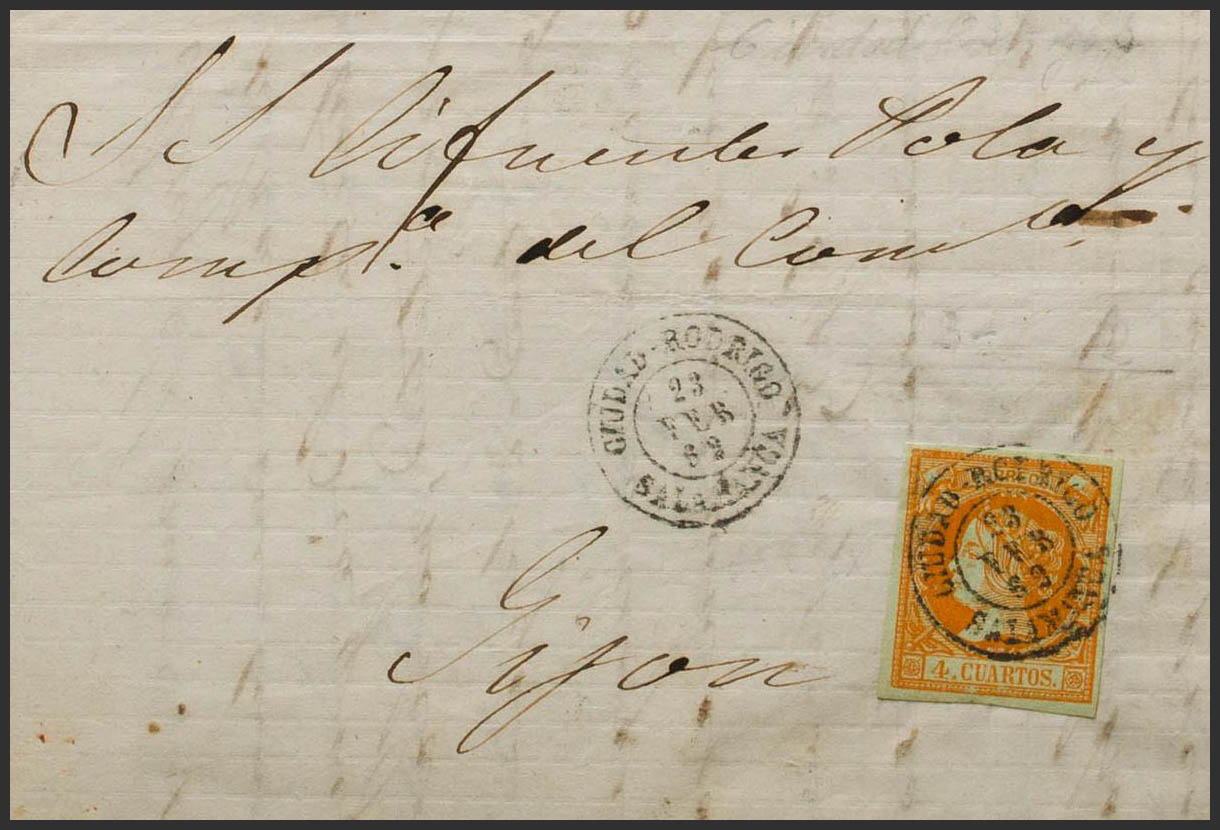 S S Cifuentes Pola y
Comp.ca del Com.
CIUDAD-RODRIGO
23
FEB
63
SALAMANCA
CIUDAD-RODRIGO
23
FEB
63
SALAMANCA
4. CUARTOS.
Gijon